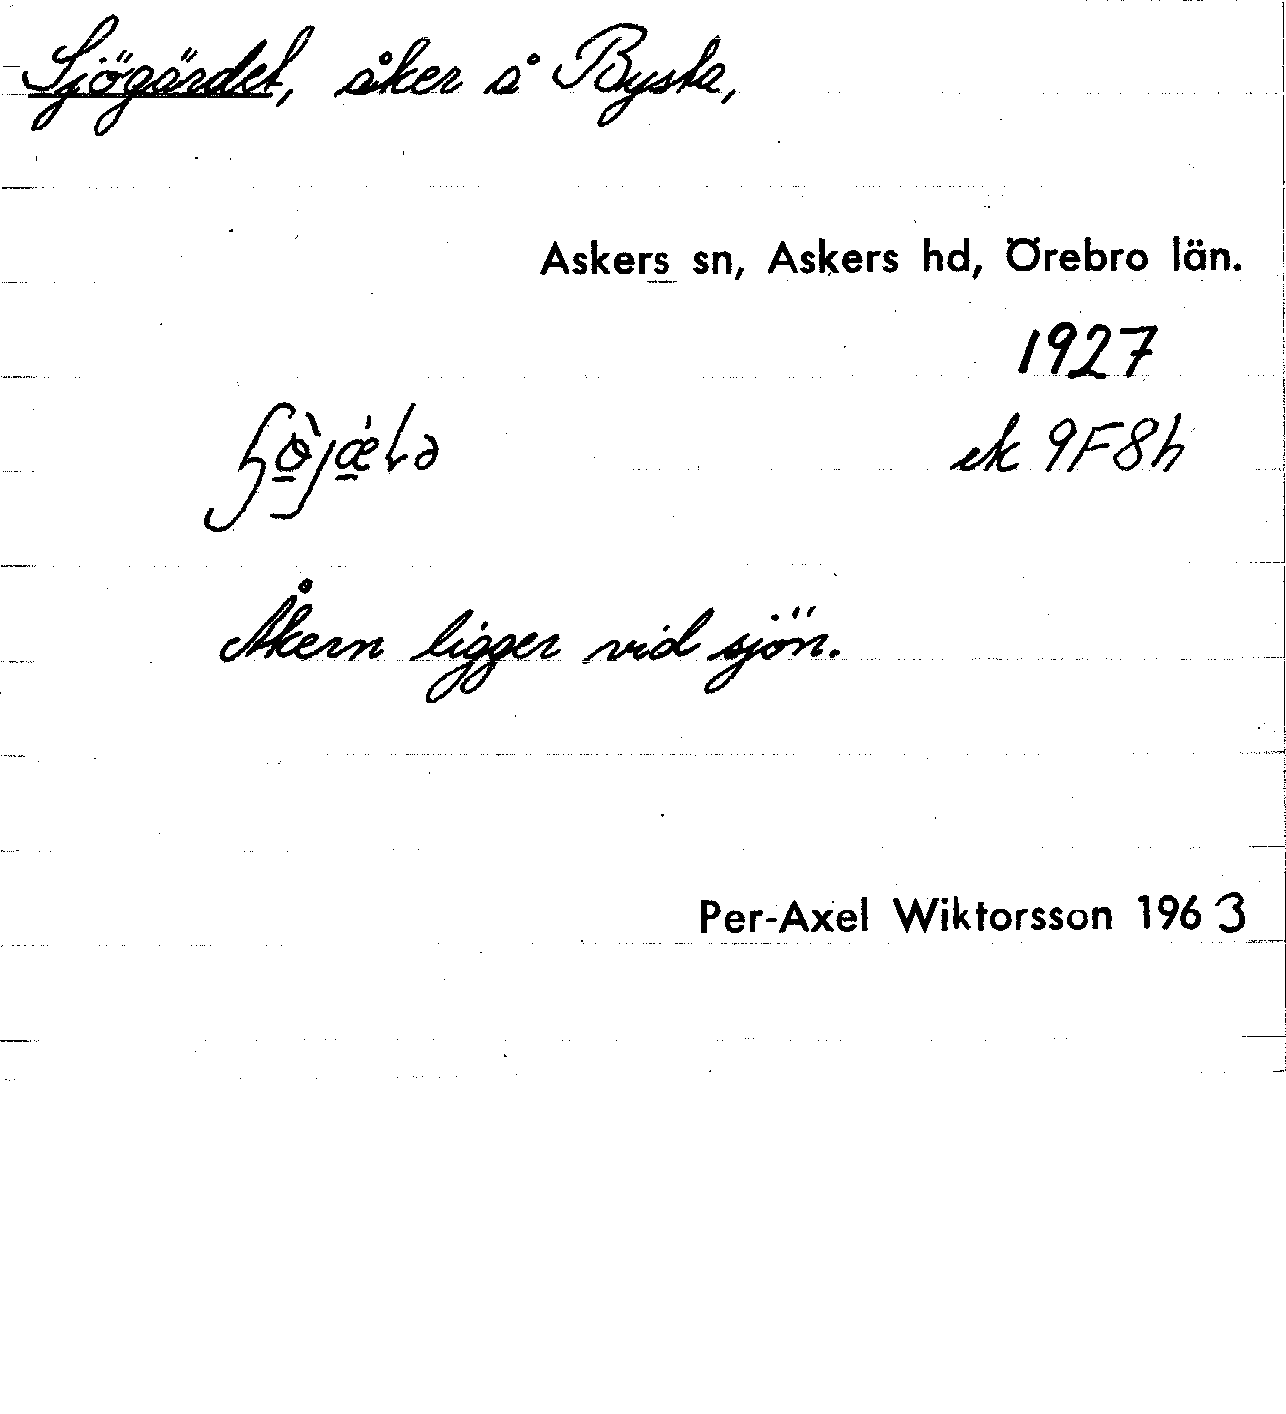 Sjögärdet, åker å Bysta,
Askers sn, Askers hd, Örebro län.
1927
ek 9F8h
Åkern ligger vid sjön.
Per-Axel Wiktorsson 1963